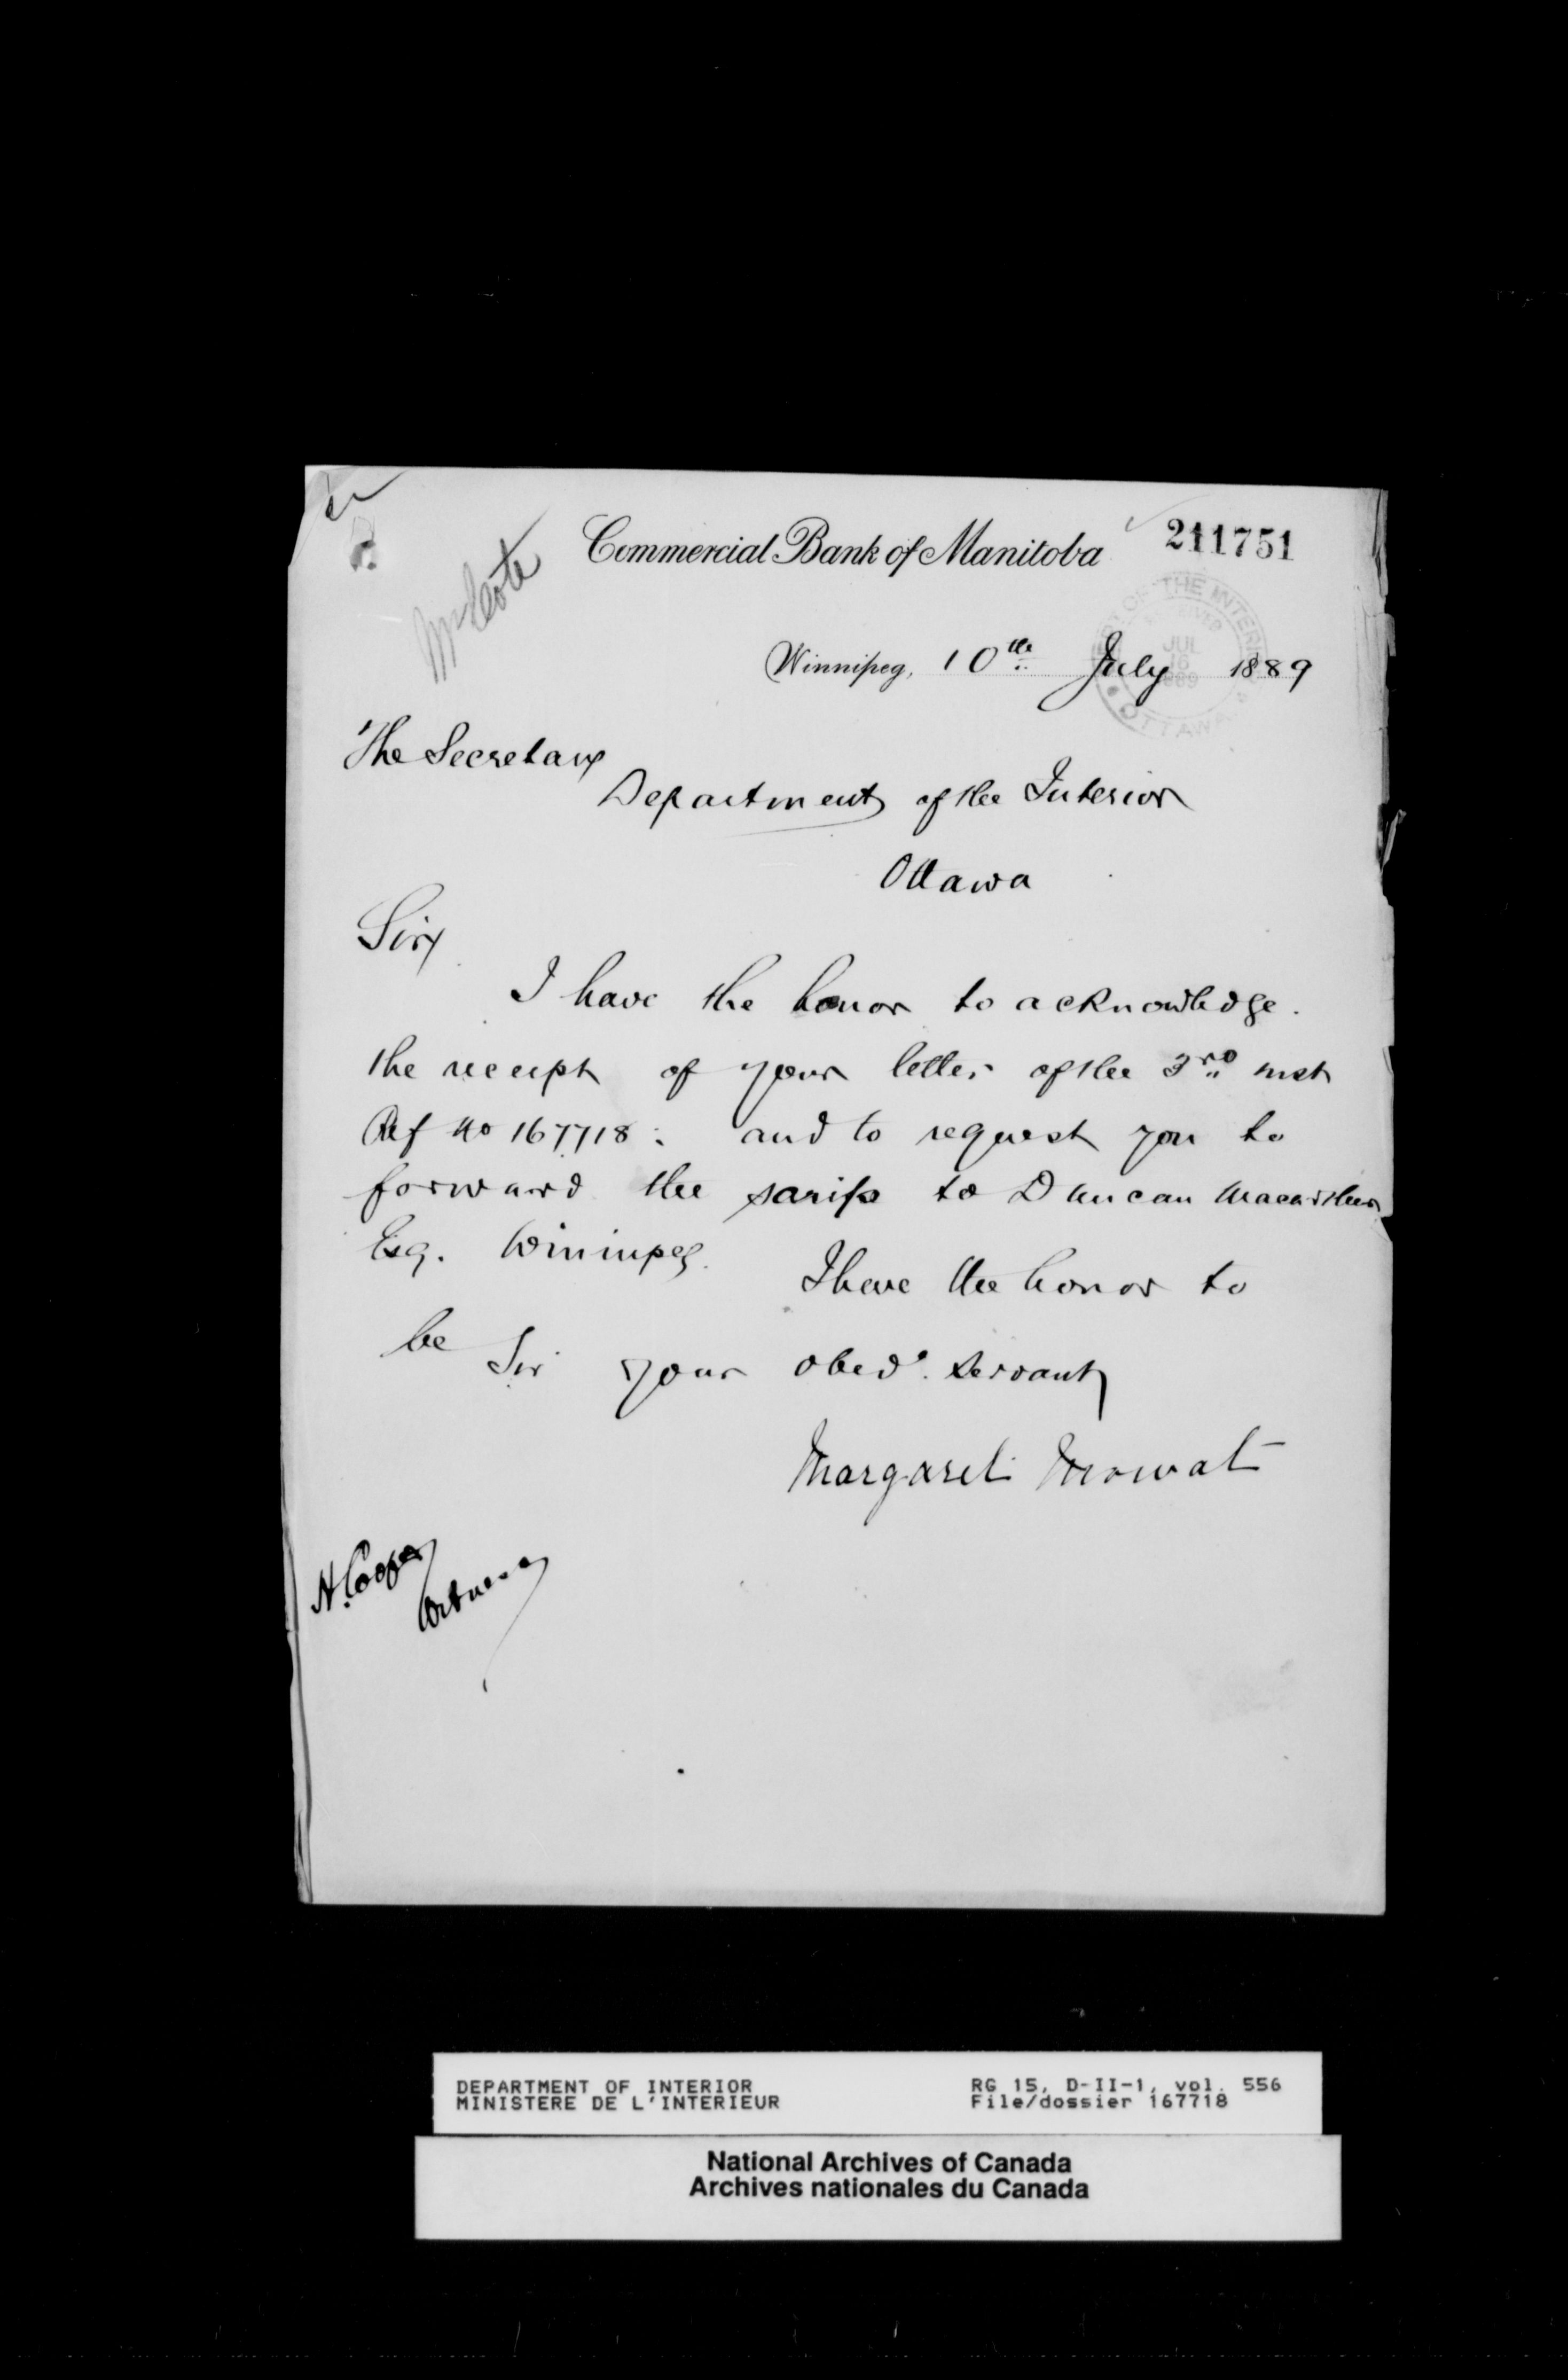 Commercial Bank of Manitoba
211751
Mr Cote
DEPT OF THE INTERIOR
RECEIVED
JUL
16
1889
OTTAWA
Winnipeg, 10th July 1889
The Secretary
Department of the Interior
Ottawa
Sir
I have the honor to acknowledge.
the receipt of your letter of the 3rd inst
Ref No 167718: and to request you to
forward the scrip to Duncan Macarthur
Esq. Winnipeg.
I have the honor to
be Sir your obedt. servant
Margaret Mowat
H. Cooper
Witness
DEPARTMENT OF INTERIOR
MINISTERE DE L'INTERIEUR
RG 15, D-II-1, vol. 556
File/dossier 167718
National Archives of Canada
Archives nationales du Canada